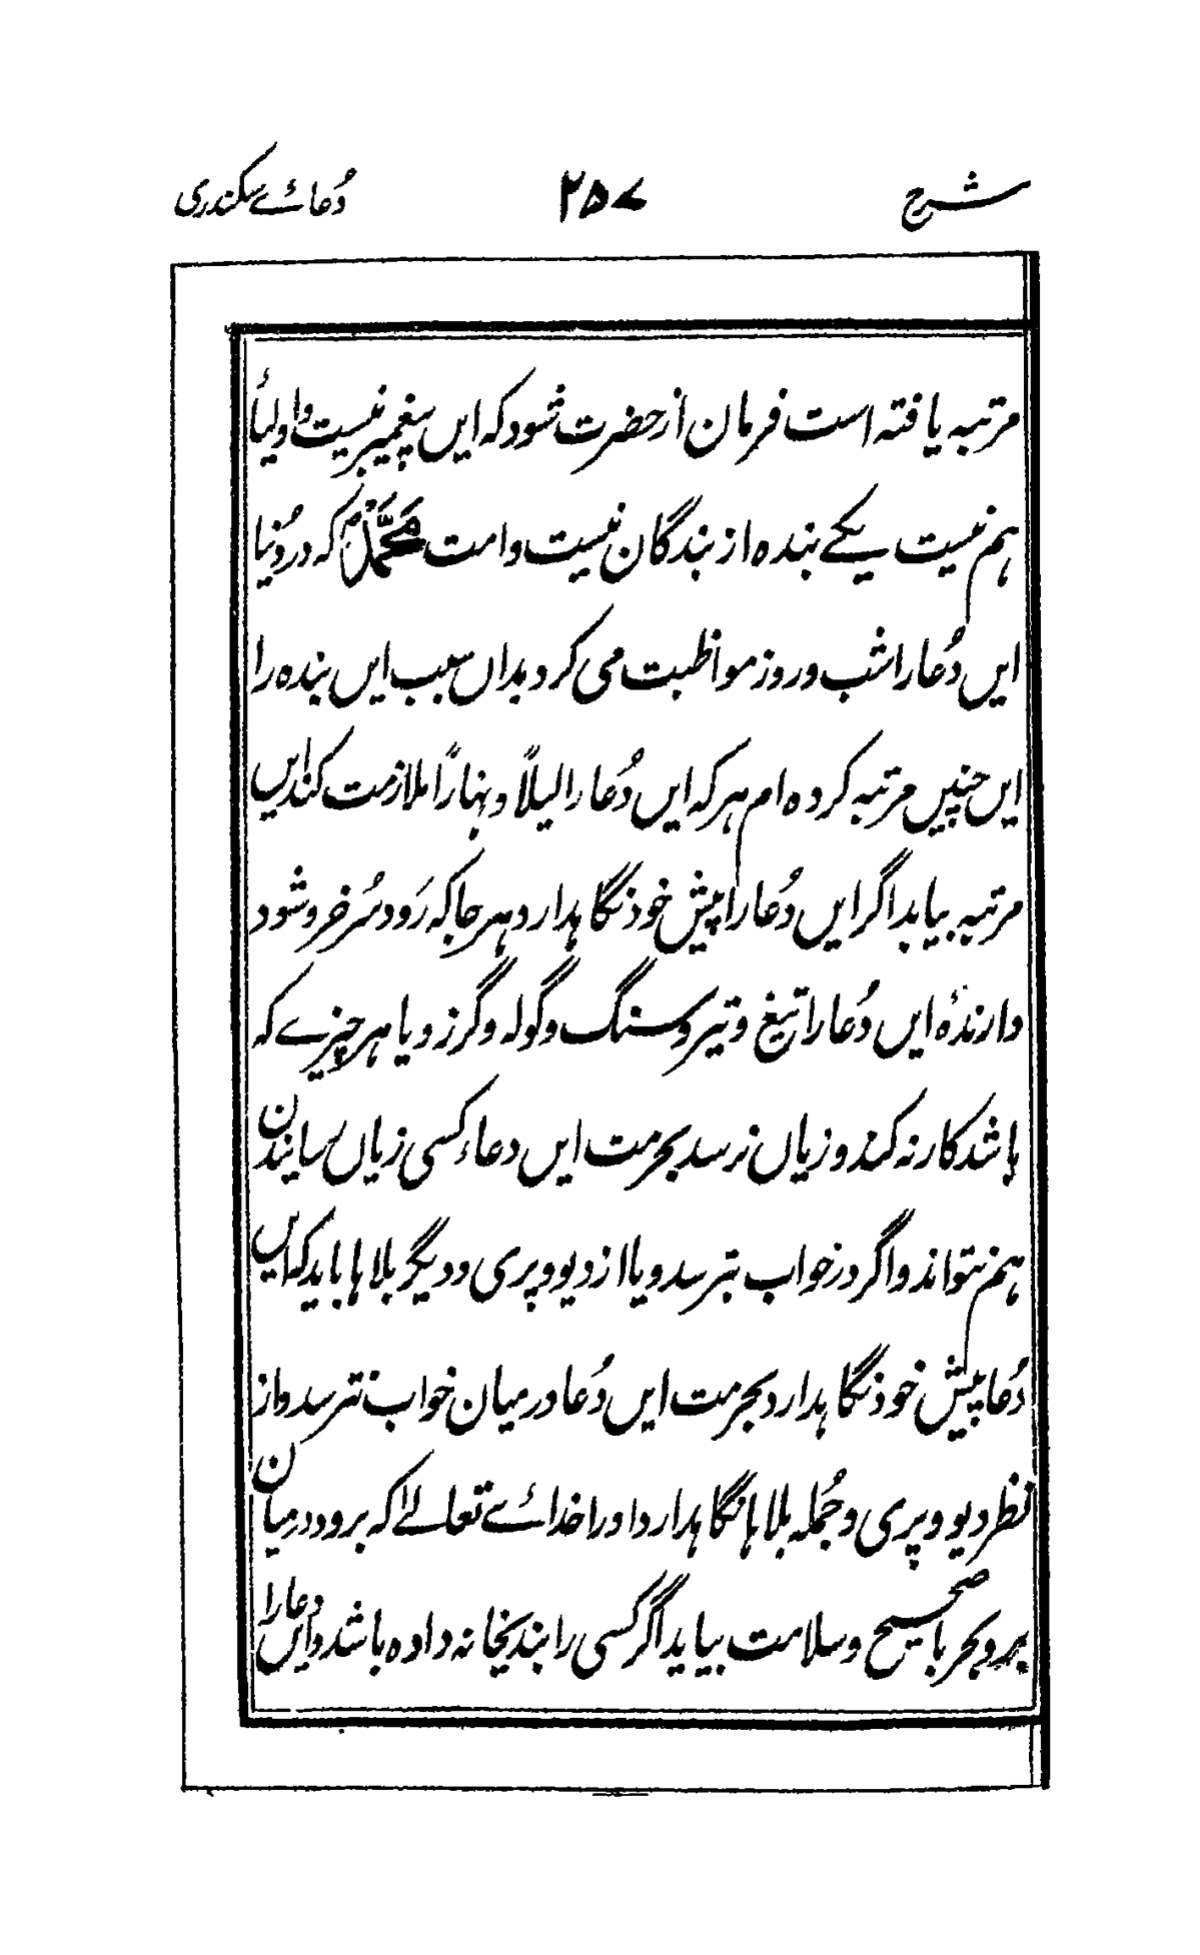 شرح ۲۵۷ دُعائے سکندری
مرتبہ یافتہ است فرمان از حضرت شود کہ ایں پیغمبر نیست و اولیأ
ہم نیست یکے بندہ از بندگان نیست و امت مُحَمَّد کہ در دُنیا
ایں دُعا را شب و روز مواظبت می کرد بداں سبب ایں بندہ را
ایں چنیں مرتبہ کردہ ام ہر کہ ایں دُعا را لیلاً و نہاراً ملازمت کند ایں
مرتبہ بیابد اگر ایں دُعا را پیش خود نگاہدارد ہر جا کہ رَود سُرخرو شود
دارندۂ ایں دُعا را تیغ و تیر و سنگ و گولہ و گرز و یا ہر چیزے کہ
باشد کار نہ کند و زیاں نرسد بحرمت ایں دعاء کسی زیاں رسانیدن
ہم نتواند و اگر در خواب بترسد و یا از دیو و پری و دیگر بلاہا باید کہ ایں
دُعا پیش خود نگاہدارد بحرمت ایں دُعا در میان خواب نترسد و از
نظر دیو و پری و جُملہ بلاہا نگاہدارد او را خدائے تعالےٰ کہ برود درمیان
بر و بحر با صحیح و سلامت بیاید اگر کسی را بندیخانہ دادہ باشد و ایں دعا را